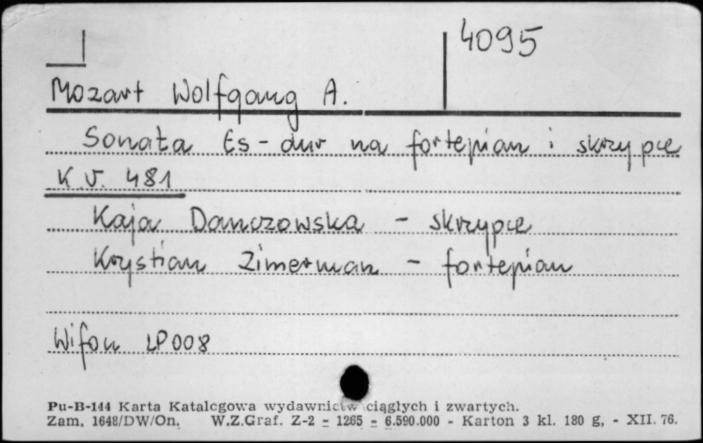 4095
Mozart Wolfgang A.
Sonata Es-dur na fortepian i skrzypce
K.V. 481
Kaja Danczowska - skrzypce
Krystian Zimerman - fortepian
Wifon LP008
Pu-B-144 Karta Katalogowa wydawnictw ciągłych i zwartych.
Zam. 1648/DW/On. W.Z.Graf. Z-2 - 1265 - 6.590.000 - Karton 3 kl. 180 g, - XII. 76.